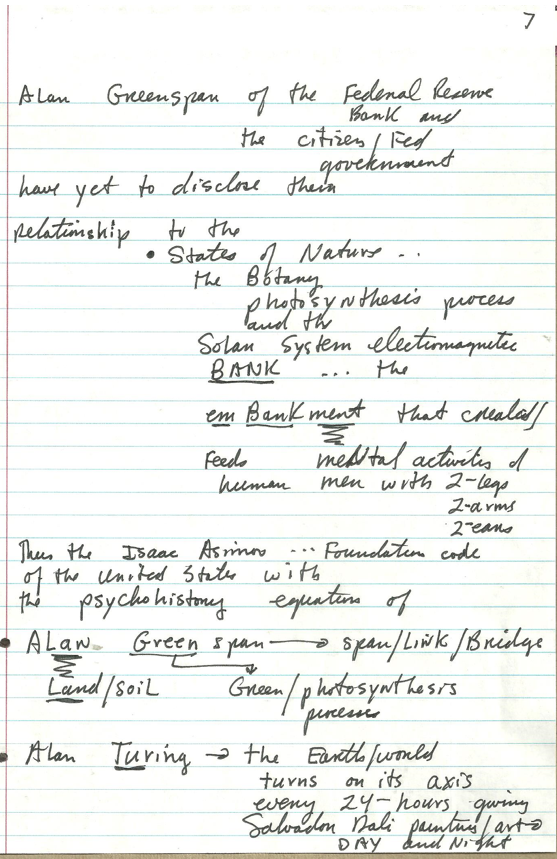 7
Alan Greenspan of the Federal Reserve
Bank and
the citizen/Fed
government
have yet to disclose their
relationship to the
• States of Nature ..
the Botany
photosynthesis process
and the
Solar System electromagnetic
BANK ... the
em Bankment that created/
Feeds mental activities of
human men with 2-legs
2-arms
2-ears
Thus the Isaac Asimov ... Foundation code
of the United States with
the psychohistory equation of
• ALan Green span → span/Link/Bridge
Land/soil Green/photosynthesis
processes
• Alan Turing → the Earth/world
turns on its axis
every 24-hours giving
Salvador Dali painting/art→
DAY and Night